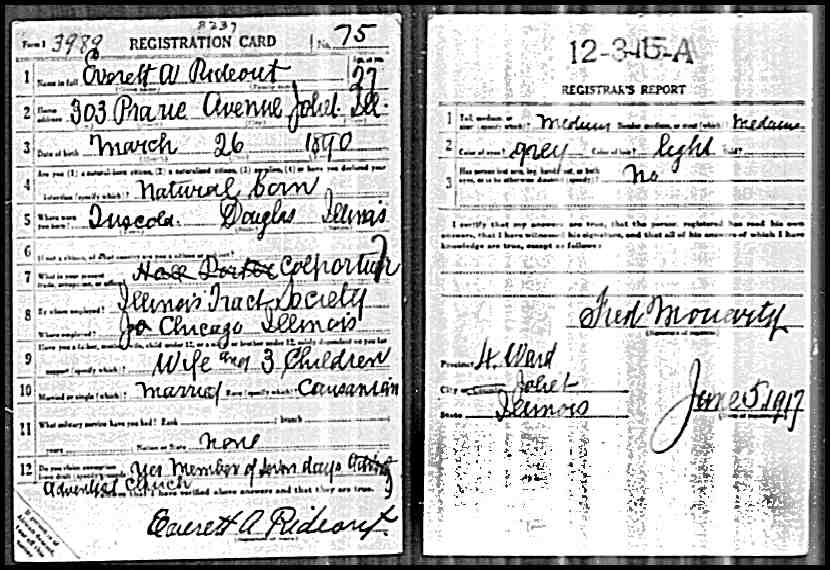 8237
Form 1 3989 REGISTRATION CARD No. 75
1 Name in full Everett A Rideout 27
2 Home address 303 Prarie Avenue Joliet Ill.
3 Date of birth March 26 1890
4 Are you (1) a natural-born citizen, (2) a naturalized citizen, (3) an alien, (4) or have you declared your
intention (specify which)? Natural born
5 Where were you born? Tuscola Douglas Illinois
6 If not a citizen, of what country are you a citizen or subject?
7 What is your present trade, occupation, or office? Colporteur
8 By whom employed? Illinois Tract Society
Where employed? Chicago Illinois
9 Have you a father, mother, wife, child under 12, or a sister or brother under 12, solely dependent on you for
support (specify which)? Wife and 3 Children
10 Married or single (which)? Married Race (specify which)? Causanian
11 What military service have you had? Rank branch
years Nation or State none
12 Do you claim exemption from draft (specify grounds)? Yes Member of Seven days
Adventist Church
I affirm that I have verified above answers and that they are true.
Everett A Rideout
12-3-15-A
REGISTRAR'S REPORT
1 Tall, medium, or short (specify which)? Medium Slender, medium, or stout (which)? Medium
2 Color of eyes? grey Color of hair? light Bald?
3 Has person lost arm, leg, hand, foot, or both eyes, or is he otherwise disabled (specify)? No
I certify that my answers are true, that the person registered has read his own
answers, that I have witnessed his signature, and that all of his answers of which I have
knowledge are true, except as follows:
Fred
(Signature of registrar)
Precinct 4 Ward
City Joliet
State Illinois
June 5, 1917